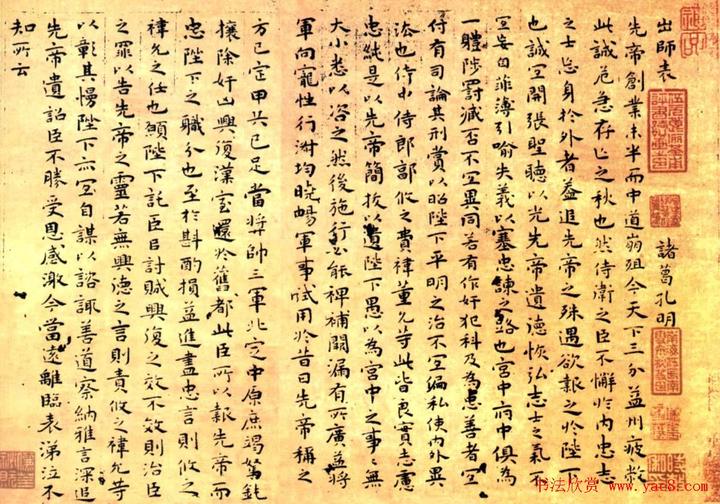 出師表 諸葛孔明
先帝創業未半而中道崩殂今天下三分益州疲敝
此誠危急存亡之秋也然侍衛之臣不懈於內忠志
之士忘身於外者蓋追先帝之殊遇欲報之於陛下
也誠宜開張聖聽以光先帝遺德恢弘志士之氣不
宜妄自菲薄引喻失義以塞忠諫之路也宮中府中俱為
一體陟罰臧否不宜異同若有作奸犯科及為忠善者宜
付有司論其刑賞以昭陛下平明之治不宜偏私使內外異
法也侍中侍郎郭攸之費禕董允等此皆良實志慮
忠純是以先帝簡拔以遺陛下愚以為宮中之事事無
大小悉以咨之然後施行必能裨補闕漏有所廣益將
軍向寵性行淑均曉暢軍事試用於昔日先帝稱之
方已定甲兵已足當獎帥三軍北定中原庶竭駑鈍
攘除奸凶興復漢室還於舊都此臣所以報先帝而
忠陛下之職分也至於斟酌損益進盡忠言則攸之
禕允之任也願陛下託臣以討賊興復之效不效則治臣
之罪以告先帝之靈若無興德之言則責攸之禕允等
以彰其慢陛下亦宜自謀以諮諏善道察納雅言深追
先帝遺詔臣不勝受恩感激今當遠離臨表涕泣不
知所云
书法欣赏
www.yac8.com